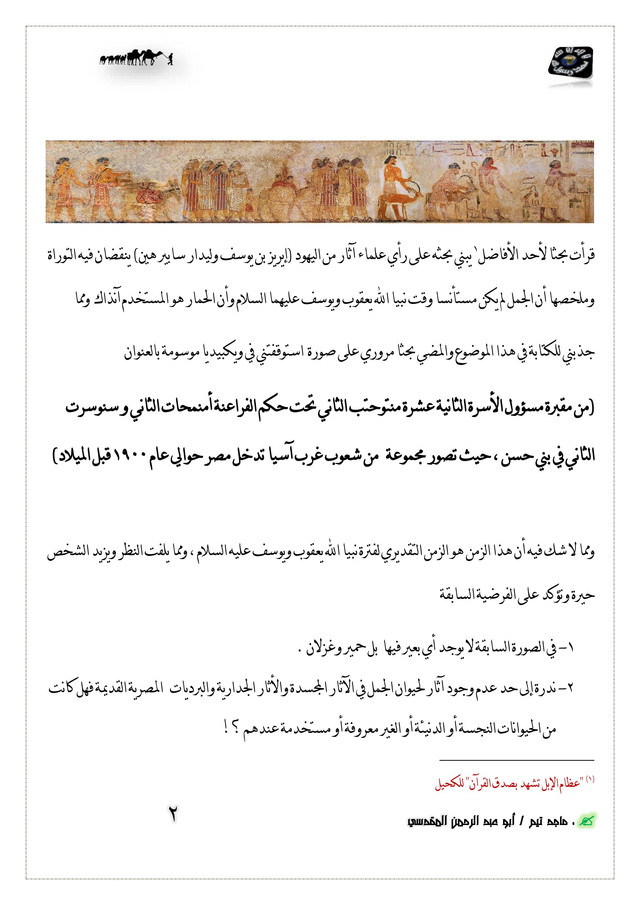 قرأت بحثا لأحد الأفاضل١ يبني بحثه على رأي علماء آثار من اليهود (إيريز بن يوسف وليدار سايبر هين) ينقضان فيه التوراة
وملخصها أن الجمل لم يكن مستأنسا وقت نبيا الله يعقوب ويوسف عليهما السلام وأن الحمار هو المستخدم آنذاك ومما
جذبني للكتابة في هذا الموضوع والمضي بحثا مروري على صورة استوقفتني في ويكيبيديا موسومة بالعنوان
(من مقبرة مسؤول الأسرة الثانية عشرة منتوحتب الثاني تحت حكم الفراعنة أمنمحات الثاني و سنوسرت
الثاني في بني حسن ، حيث تصور مجموعة من شعوب غرب آسيا تدخل مصر حوالي عام ١٩٠٠ قبل الميلاد)
ومما لا شك فيه أن هذا الزمن هو الزمن التقديري لفترة نبيا الله يعقوب ويوسف عليه السلام ، ومما يلفت النظر ويزيد الشخص
حيرة وتؤكد على الفرضية السابقة
١- في الصورة السابقة لا يوجد أي بعير فيها بل حمير وغزلان .
٢- ندرة إلى حد عدم وجود آثار لحيوان الجمل في الآثار المجسدة والأثار الجدارية والبرديات المصرية القديمة فهل كانت
من الحيوانات النجسة أو الدنيئة أو الغير معروفة أو مستخدمة عندهم ؟ !
(١) "عظام الإبل تشهد بصدق القرآن" للكحيل
، ماجد تيم / أبو عبد الرحمن المقدسي
٢